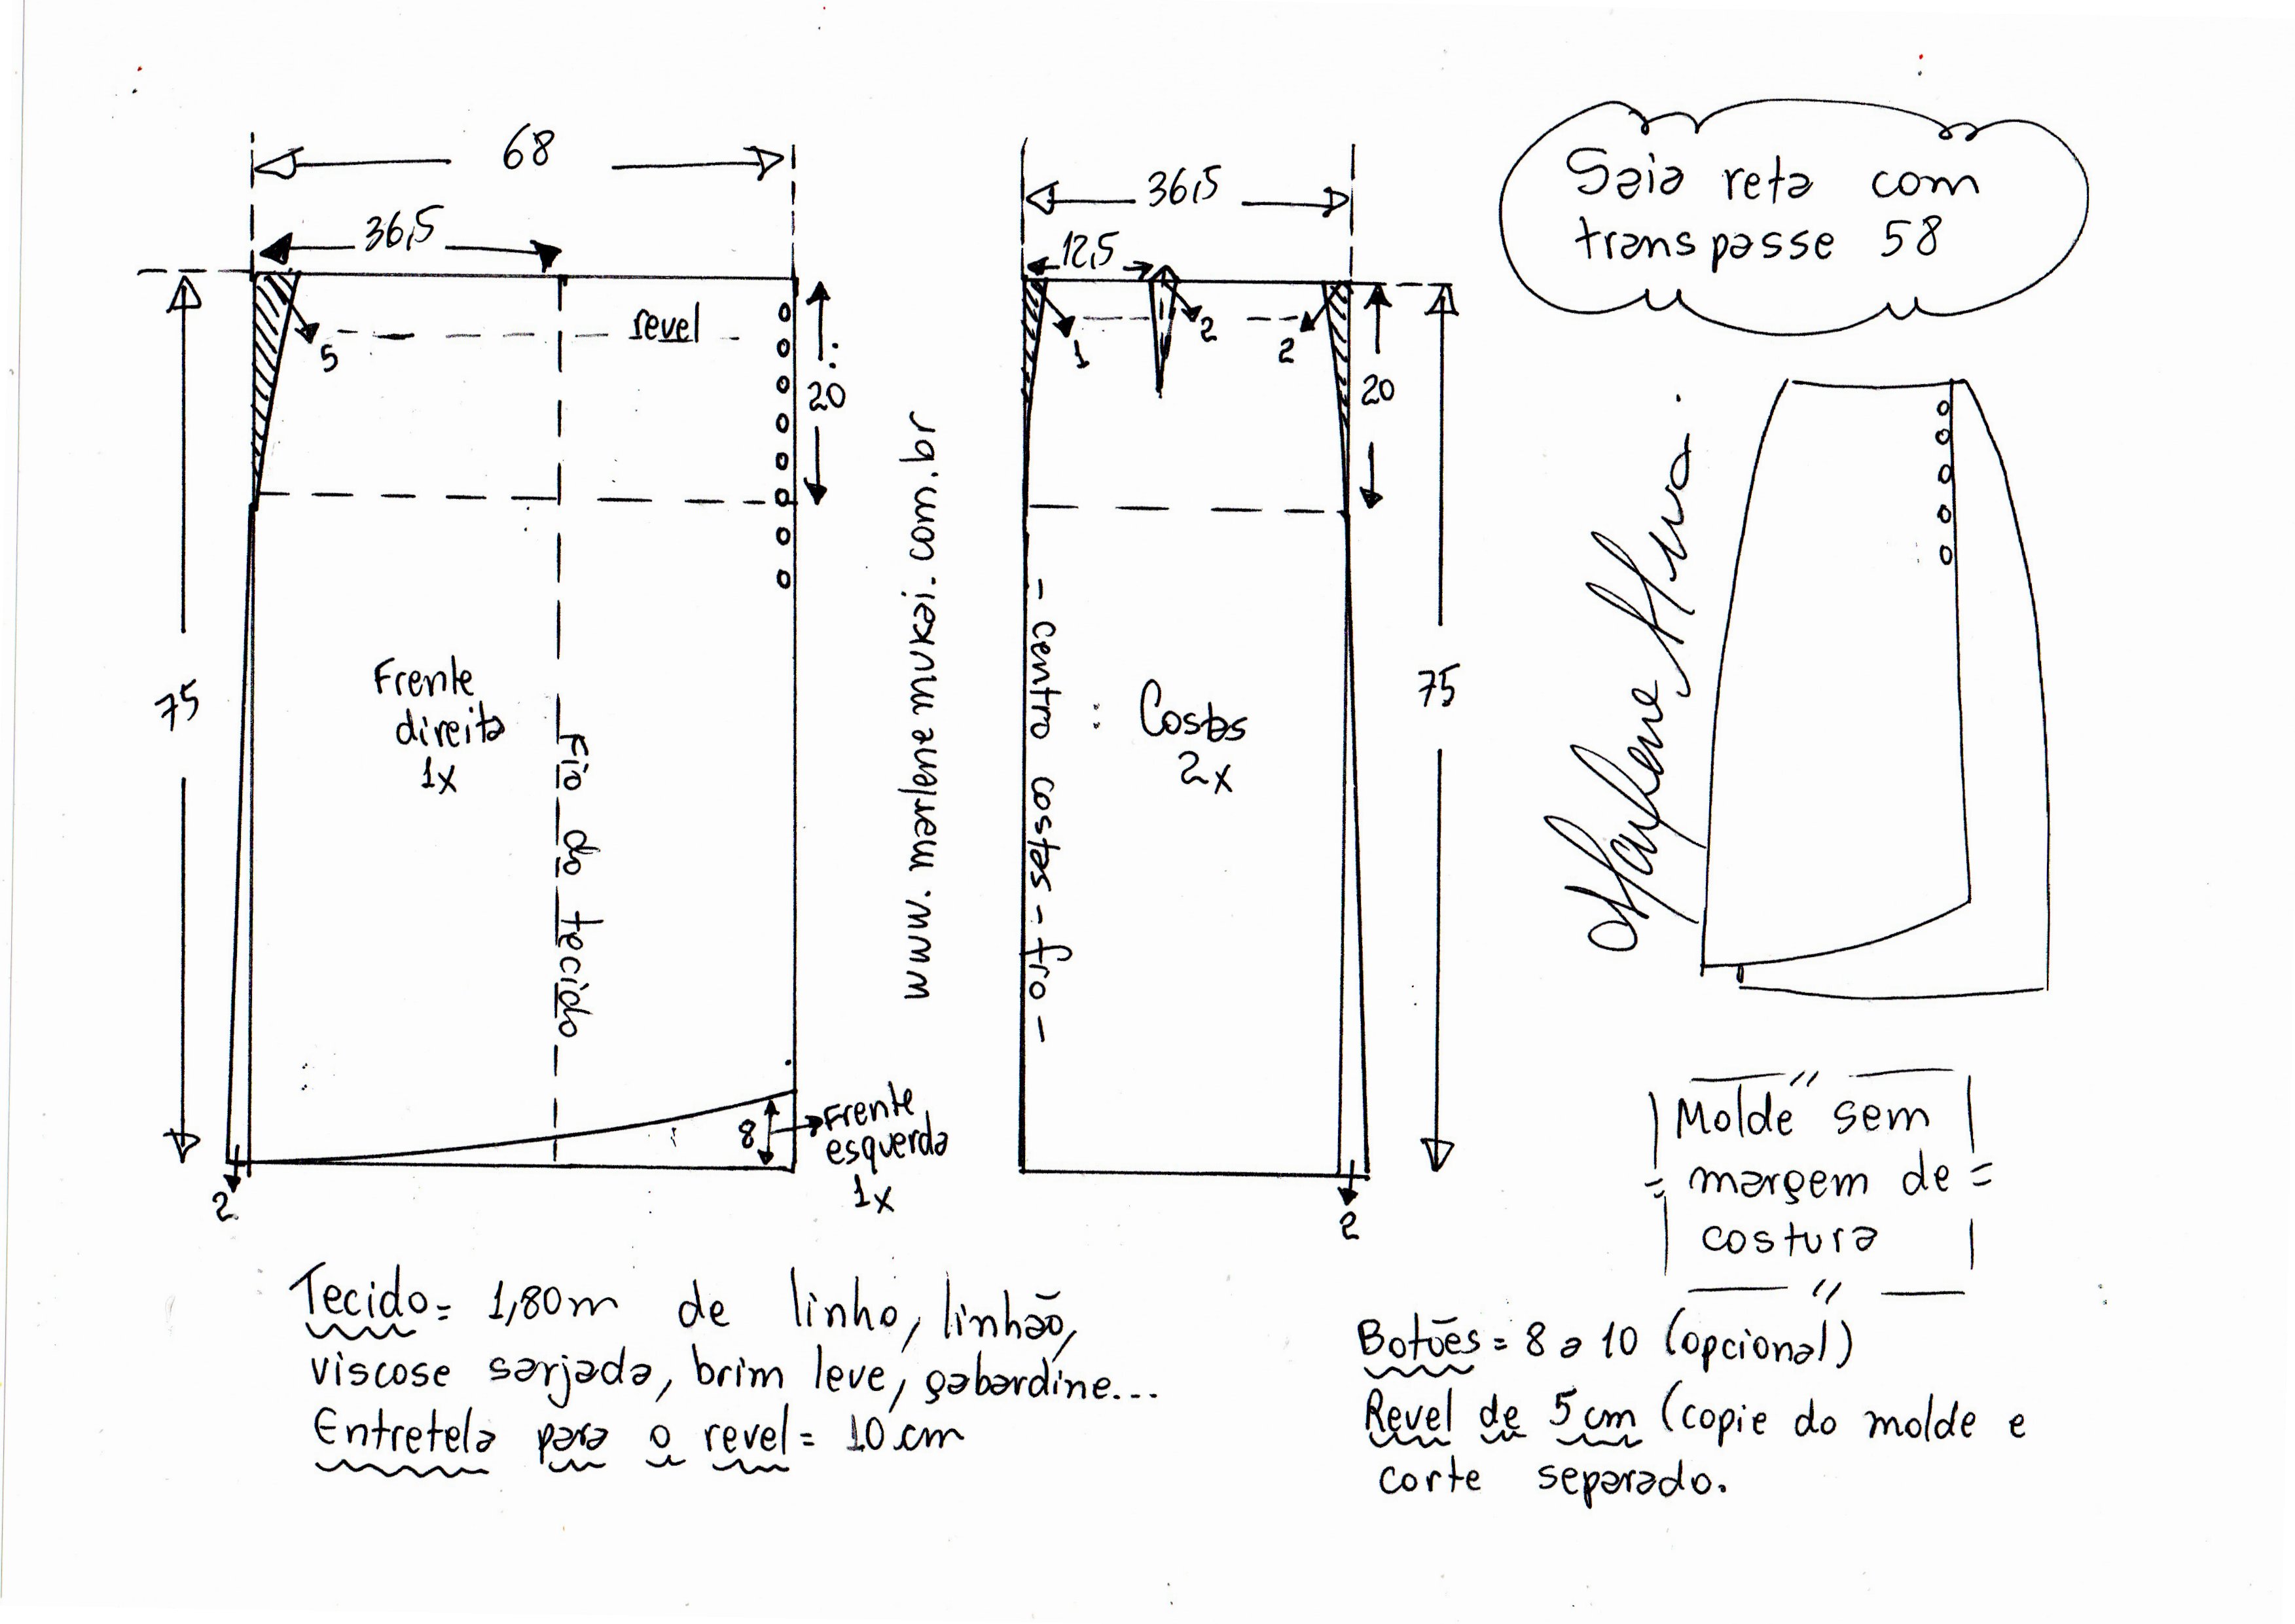 68
36,5
5
revel
20
75
Frente
direita
1x
Fio do tecido
8
Frente
esquerda
1x
2
www.marlenemukai.com.br
36,5
12,5
1
2
2
20
75
- centro costas - fio -
Costas
2x
2
Saia reta com
transpasse 58
Marlene Mukai
Molde sem
margem de
costura
Tecido = 1,80m de linho, linhão,
viscose sarjada, brim leve, gabardine...
Entretela para o revel = 10 cm
Botões = 8 a 10 (opcional)
Revel de 5 cm (copie do molde e
corte separado.